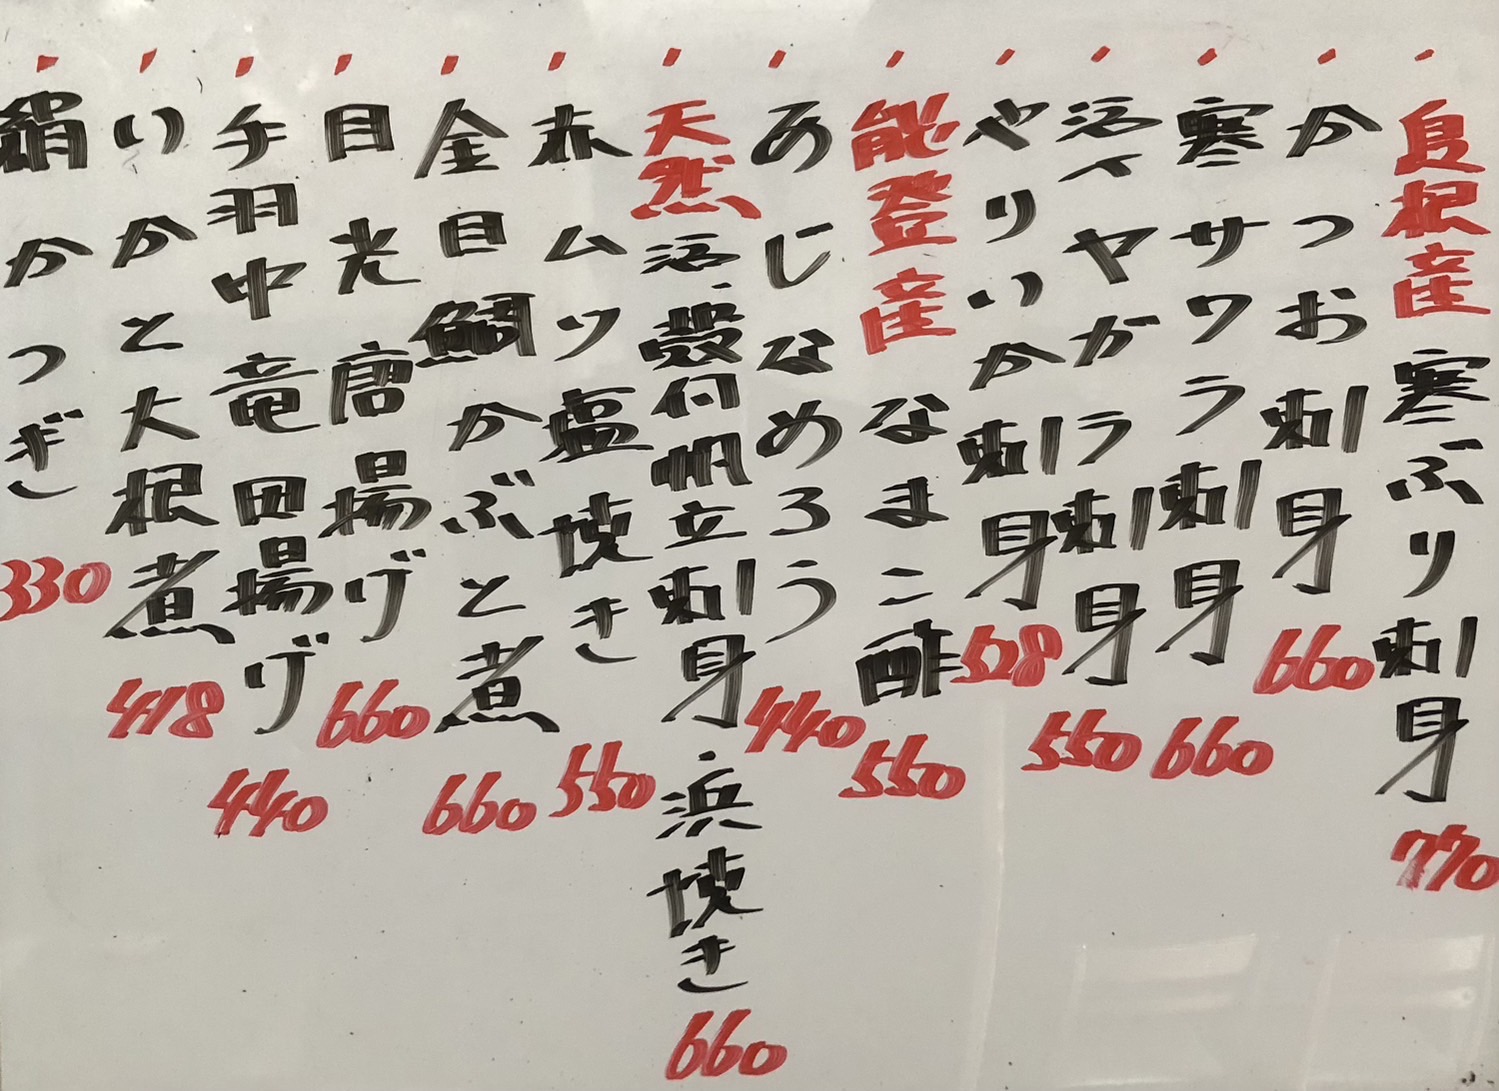 ・島根産 寒ぶり刺身 770
・かつお刺身 660
・寒サワラ刺身 660
・活〆ヤガラ刺身 550
・やりいか刺身 528
・能登産 なまこ酢 550
・あじなめろう 440
・天然活殻付帆立刺身・浜焼き 660
・赤ムツ塩焼き 550
・金目鯛かぶと煮 660
・目光唐揚げ 660
・手羽中竜田揚げ 440
・いかと大根煮 418
・絹かつぎ 330